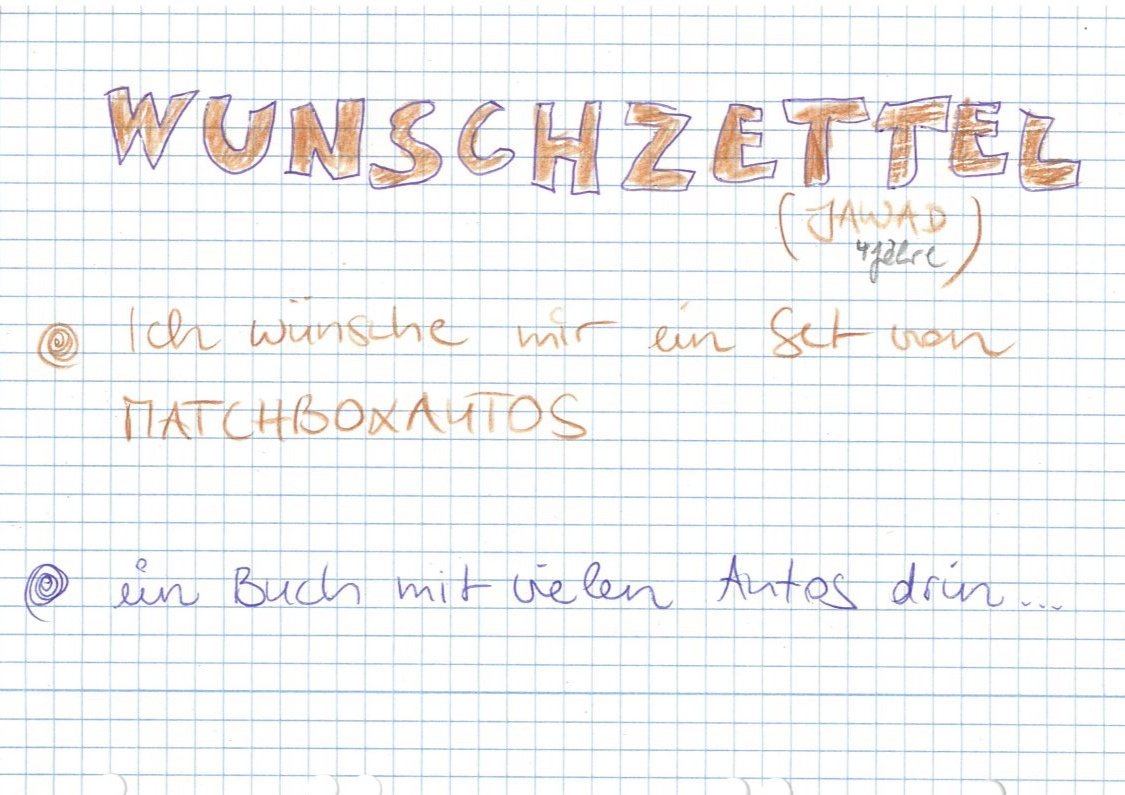 WUNSCHZETTEL
(JAWAD
4 Jahre)
Ich wünsche mir ein Set von
MATCHBOXAUTOS
ein Buch mit vielen Autos drin...